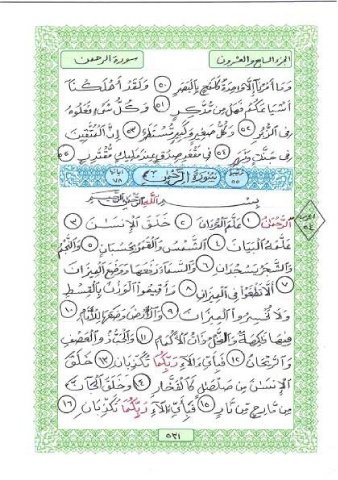 الجزء السابع والعشرون
سورة الرحمن
وَمَا أَمْرُنَا إِلَّا وَاحِدَةٌ كَلَمْحٍ بِالْبَصَرِ ٥٠ وَلَقَدْ أَهْلَكْنَا
أَشْيَاعَكُمْ فَهَلْ مِن مُّدَّكِرٍ ٥١ وَكُلُّ شَىْءٍ فَعَلُوهُ
فِى الزُّبُرِ ٥٢ وَكُلُّ صَغِيرٍ وَكَبِيرٍ مُّسْتَطَرٌ ٥٣ إِنَّ الْمُتَّقِينَ
فِى جَنَّتٍ وَنَهَرٍ ٥٤ فِى مَقْعَدِ صِدْقٍ عِندَ مَلِيكٍ مُّقْتَدِرٍ ٥٥
سُورَةُ الرَّحْمَن
بِسْمِ اللَّهِ الرَّحْمَنِ الرَّحِيمِ
الرَّحْمَنُ ١ عَلَّمَ الْقُرْءَانَ ٢ خَلَقَ الْإِنسَنَ ٣
عَلَّمَهُ الْبَيَانَ ٤ الشَّمْسُ وَالْقَمَرُ بِحُسْبَانٍ ٥ وَالنَّجْمُ
وَالشَّجَرُ يَسْجُدَانِ ٦ وَالسَّمَاءَ رَفَعَهَا وَوَضَعَ الْمِيزَانَ
٧ أَلَّا تَطْغَوْا فِى الْمِيزَانِ ٨ وَأَقِيمُوا الْوَزْنَ بِالْقِسْطِ
وَلَا تُخْسِرُوا الْمِيزَانَ ٩ وَالْأَرْضَ وَضَعَهَا لِلْأَنَامِ ١٠
فِيهَا فَكِهَةٌ وَالنَّخْلُ ذَاتُ الْأَكْمَامِ ١١ وَالْحَبُّ ذُو الْعَصْفِ
وَالرَّيْحَانُ ١٢ فَبِأَىِّ ءَالَاءِ رَبِّكُمَا تُكَذِّبَانِ ١٣ خَلَقَ
الْإِنسَنَ مِن صَلْصَلٍ كَالْفَخَّارِ ١٤ وَخَلَقَ الْجَانَّ
مِن مَّارِجٍ مِّن نَّارٍ ١٥ فَبِأَىِّ ءَالَاءِ رَبِّكُمَا تُكَذِّبَانِ ١٦
٥٣١